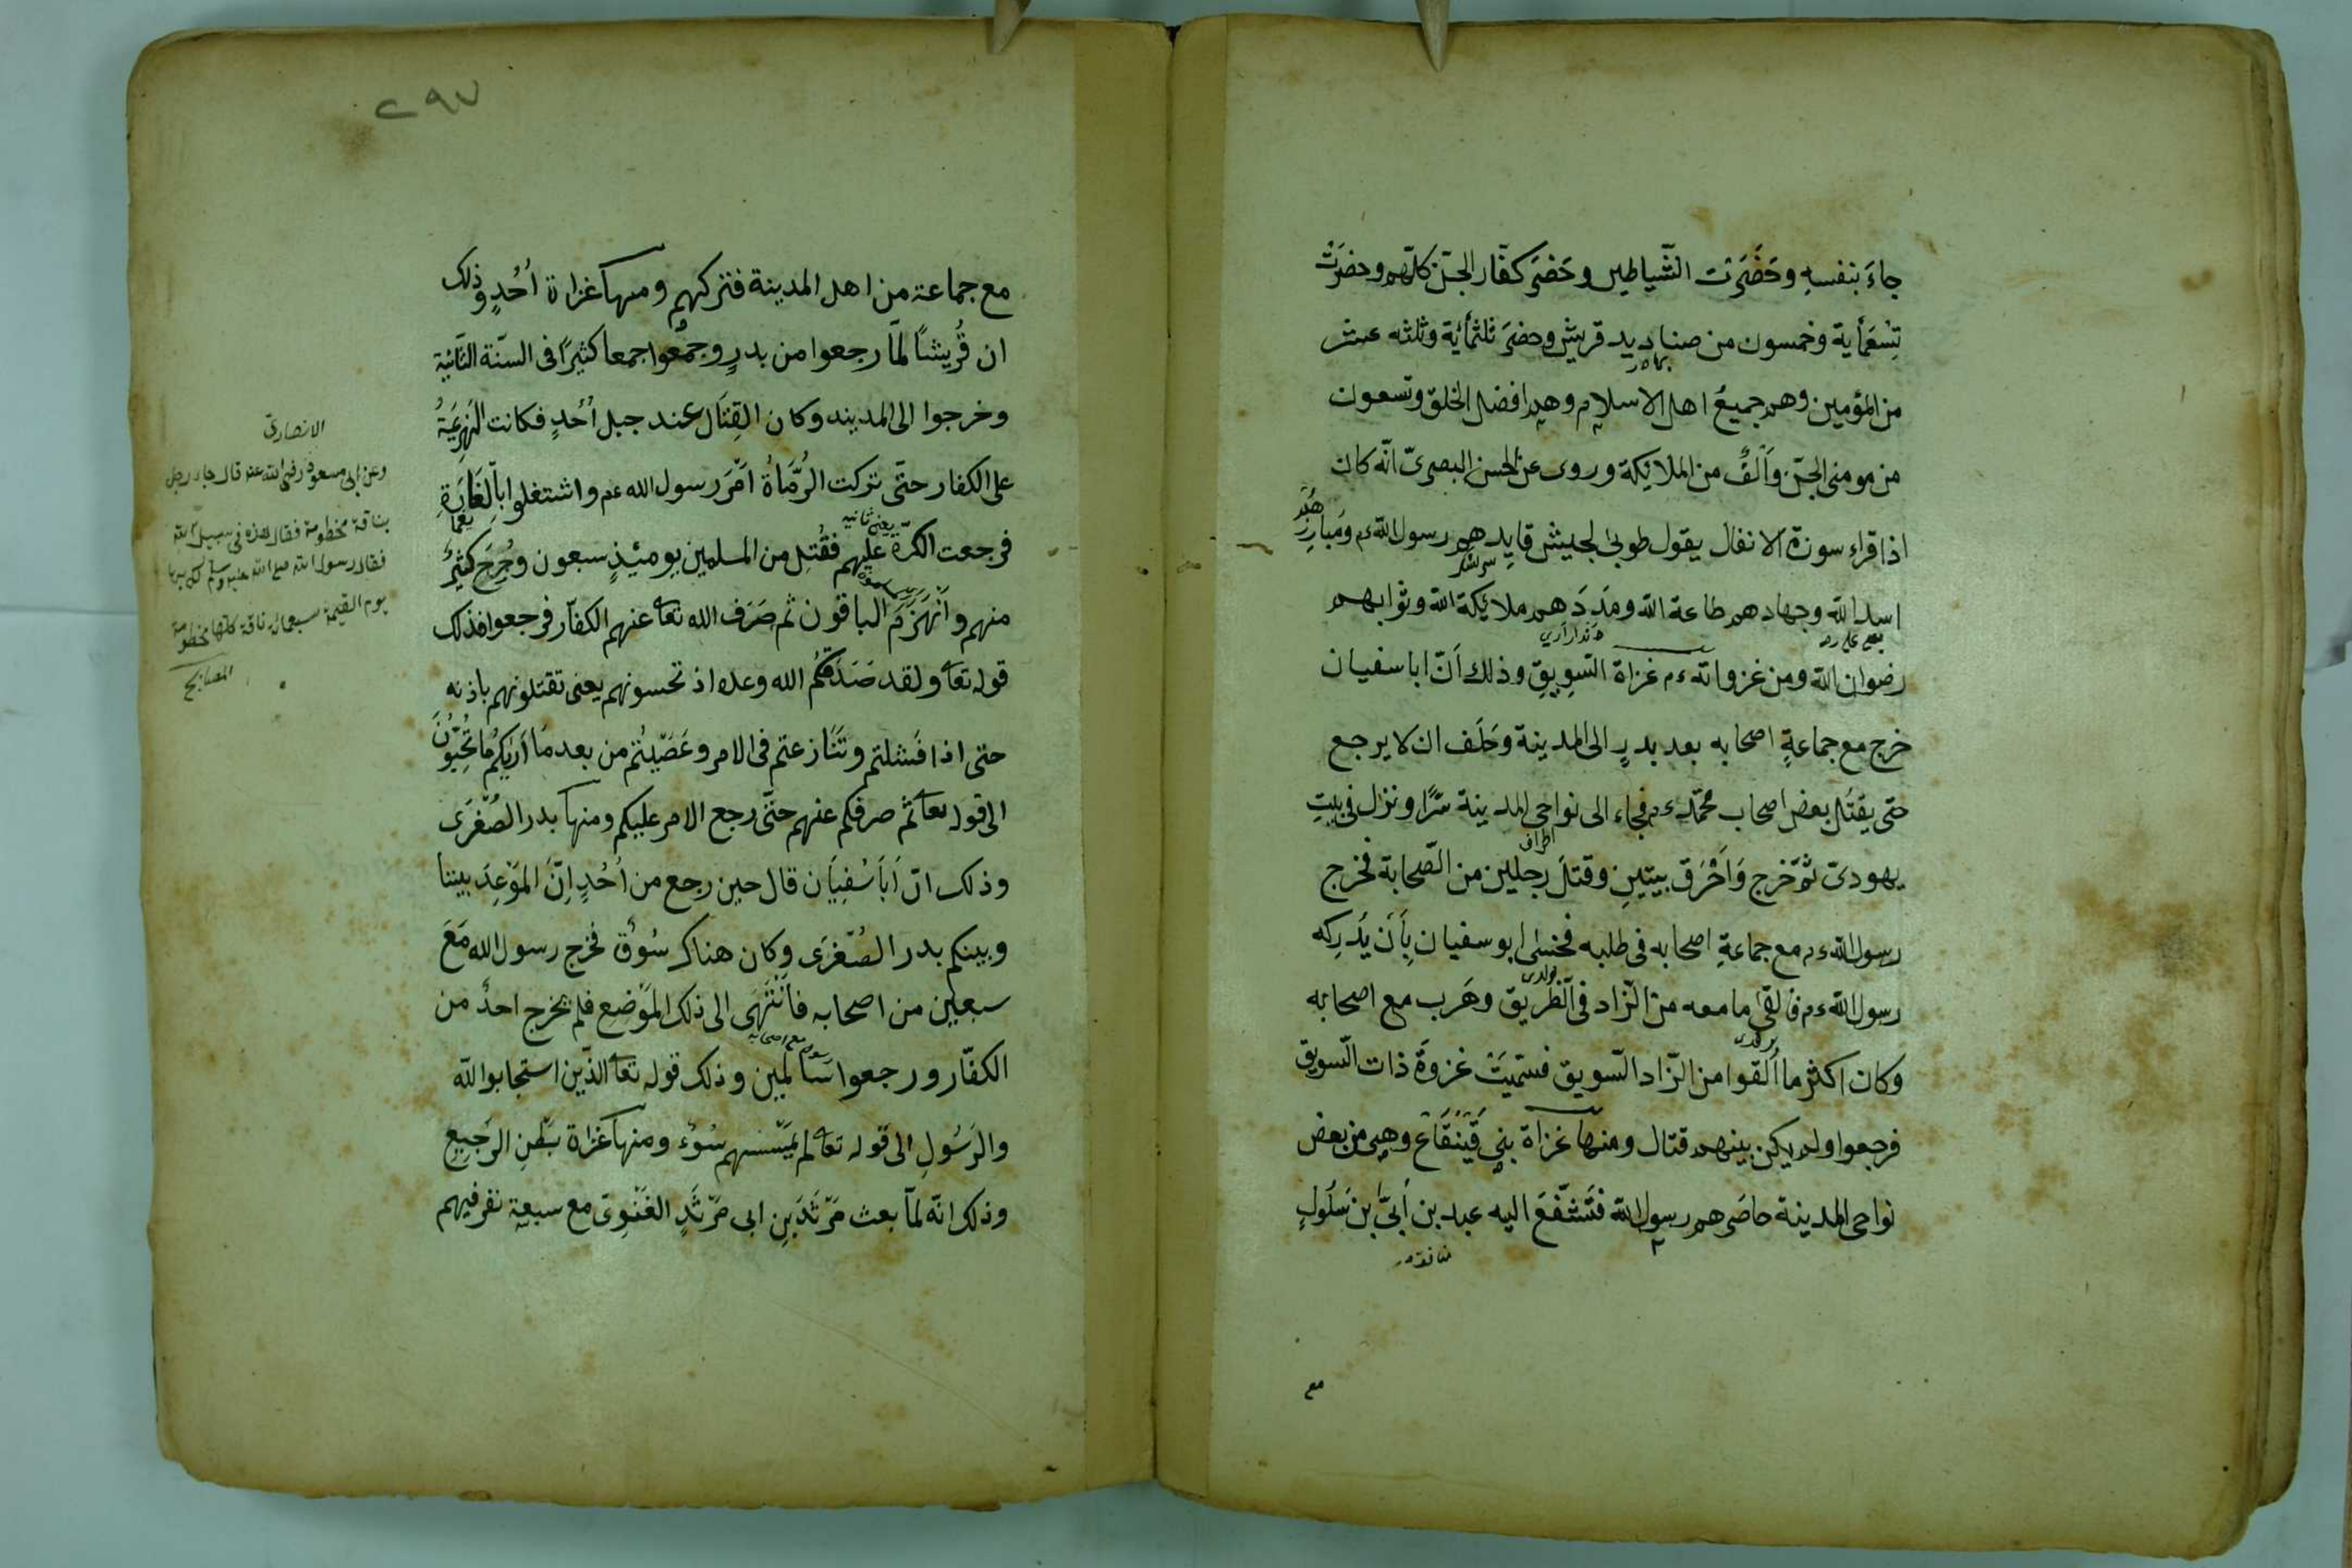 جاءَ بنفسهِ وحَضَرَت الشّياطين وحَضرَ كفّار الجنّ كلّهم وحضرَتْ
تِسْعَمأية وخمسون من صناديد قريش وحضرَ ثلثمأية وثلثه عشر
بهادر
من المؤمين وهم جميعُ اهل الاسلام وهم افضل الخلق وتسعون
من مومنى الجنّ وَاَلْفٌ من الملائِكة وروى عن الحسن البصرىّ انّه كان
اذا قراء سورة الانفال يقول طوبى لجيش قايدهم رسول الله ءم ومبارزهم
سر لشكر
اسد الله وجهادهم طاعة الله ومَدَدَهم ملائكة الله وثوابهم
يعنى على رض
رضوان الله ومن غزواته ءم غزاة السَّوِيقِ وذلك اَنّ ابا سفيان
خرج مع جماعةٍ اصحابه بعد بدرٍ الى المدينة وحَلَف ان لا يرجع
حتى يقتُل بعض اصحاب محمّد ءم فجاء الى نواحى المدينة سّرًا ونزل فى بيت
اطراف
يهودىّ ثمّ خرج وَاَحْرَق بيتينِ وقتلَ رجلين من الصّحابة فخرج
رسول الله ءم مع جماعةِ اصحابه فى طلبه فخشى ابو سفيان بِاَنْ يُدْرِكه
رسول الله ءم فالقى ما معه من الزّاد فى الّطريق وهَرب مع اصحابه
وكان اكثر ما اُلقوا من الزّاد السّويق فسمّيَتْ غزوَةَ ذات السّويق
فرجعوا ولم يكن بينهم قتال ومنها غزاة بنى قَيْنُقَاع وهى من بعض
نواحى المدينة حاصَرهم رسول الله فَتَشَفَّعَ اليه عبد بن اُبىّ بن سَلُولٍ
مع
٢٩٧
مع جماعة من اهل المدينة فتركهم ومنها غزاة اُحُدٍ وذلك
ان قُريشًا لمّا رجعوا من بدرٍ وجمعوا جمعا كثيرًا فى السنّة الثّانية
وخرجوا الى المدينه وكان القِتَال عند جبل اُحُدٍ فكانت الهَزِيمَةُ
على الكفار حتّى تركت الرُّمَاةُ اَمْرَ رسول الله عم واشتغلوا بالغَارَةِ
يغما
يعنى ثانيه
فرجعت الكرّة عليهم فقُتِل من المسلمين يومئذٍ سبعون وجُرِحَ كثيرٌ
منهم وانْهَزَمَ الباقون ثم صَرَف الله تعا عنهم الكفاّر فرجعوا فذلك
قوله تعا ولقد صَدَقكُم الله وعده اذ تحسونهم يعنى تقتلونهم باذنه
حتى اذا فَشلتم وتَنَازعتم فى الامر وعَصَيْتُم من بعد مَا اَرَيكُم ما تُحِبّوُنَ
الى قوله تعا ثم صرفكم عنهم حتّى رجع الامر عليكم ومنها بدر الصُغْرَى
وذلك انّ اَبَا سُفِيَان قال حين رجع من اُحُدٍ اِنَّ المَوْعِدَ بيننا
وبينكم بدر الصُغْرَى وكان هناك سُوُق فخرج رسول الله مَعَ
سبعين من اصحابه فَانْتَهَى الى ذلك المَوْضِع فلم يخرج احدٌ من
رسول مع اصحابه
الكفّار ورجعوا سَالمين وذلك قوله تعا الذّين استجابوا لله
والرَسُولِ الى قوله تعا لم يَمْسَسهم سُوُء ومنها غزاة بَطْنِ الرَجيعِ
وذلك انّه لمّا بعث مَرْثَدَ بن ابى مَرْثَدٍ الغَنَوِىّ مع سبعة نفر فيهم
الانصارىّ
وعن ابى مسعود رضى الله عنه قال جاء رجل
بناقة مخطومة فقال هذه فى سبيل الله
فقال رسول الله صلى الله عليه وسلم لك بها
يوم القيمة سبعمائة ناقة كلها مخطومة
المصابيح